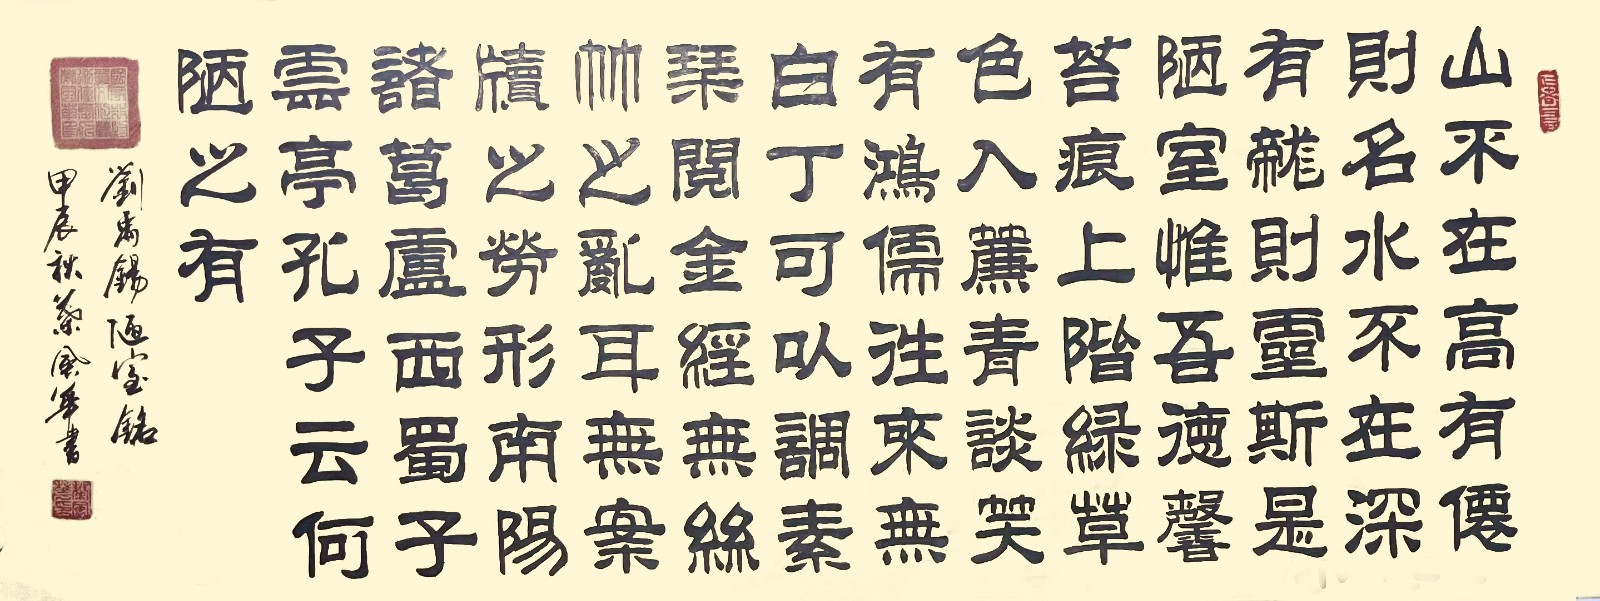 山不在高有僊
則名水不在深
有龍則靈斯是
陋室惟吾德馨
苔痕上階綠草
色入簾青談笑
有鴻儒往來無
白丁可以調素
琴閱金經無絲
竹之亂耳無案
牘之勞形南陽
諸葛盧西蜀子
雲亭孔子云何
陋之有
劉禹錫陋室銘
甲辰秋書